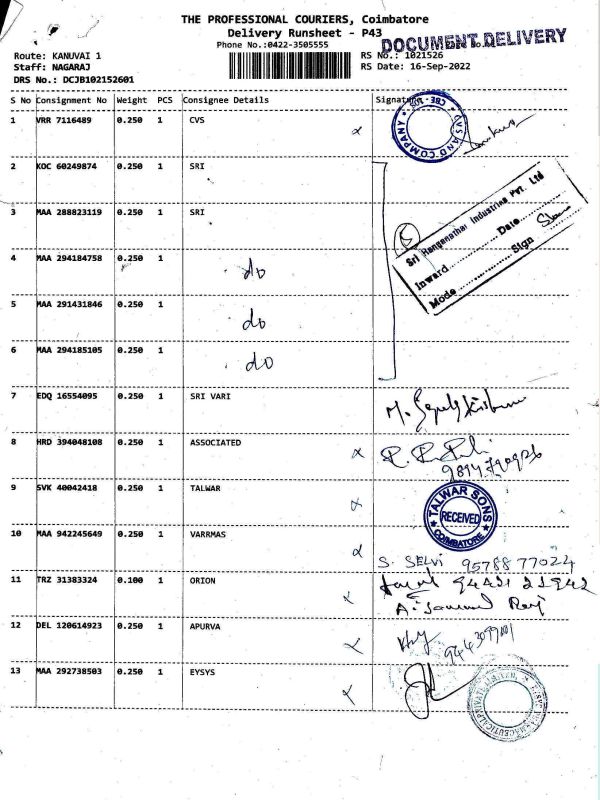 THE PROFESSIONAL COURIERS, Coimbatore
Delivery Runsheet - P43
Phone No.:0422-3505555
DOCUMENT DELIVERY
Route: KANUVAI 1
Staff: NAGARAJ
DRS No.: DCJB102152601
RS No.: 1021526
RS Date: 16-Sep-2022
S No Consignment No Weight PCS Consignee Details Signature
1 VRR 7116489 0.250 1 CVS
CVS AND COMPANY
2 KOC 60249874 0.250 1 SRI
3 MAA 288823119 0.250 1 SRI
Sri Ranganathar Industries Pvt. Ltd
Inward Date
Mode Sign
4 MAA 294184758 0.250 1 do
5 MAA 291431846 0.250 1 do
6 MAA 294185105 0.250 1 do
7 EDQ 16554095 0.250 1 SRI VARI
8 HRD 394048108 0.250 1 ASSOCIATED
9 SVK 40042418 0.250 1 TALWAR
TALWAR SONS
RECEIVED
COIMBATORE
10 MAA 942245649 0.250 1 VARRMAS
S. SELVI 95788 77024
11 TRZ 31383324 0.100 1 ORION
12 DEL 120614923 0.250 1 APURVA
13 MAA 292738503 0.250 1 EYSYS